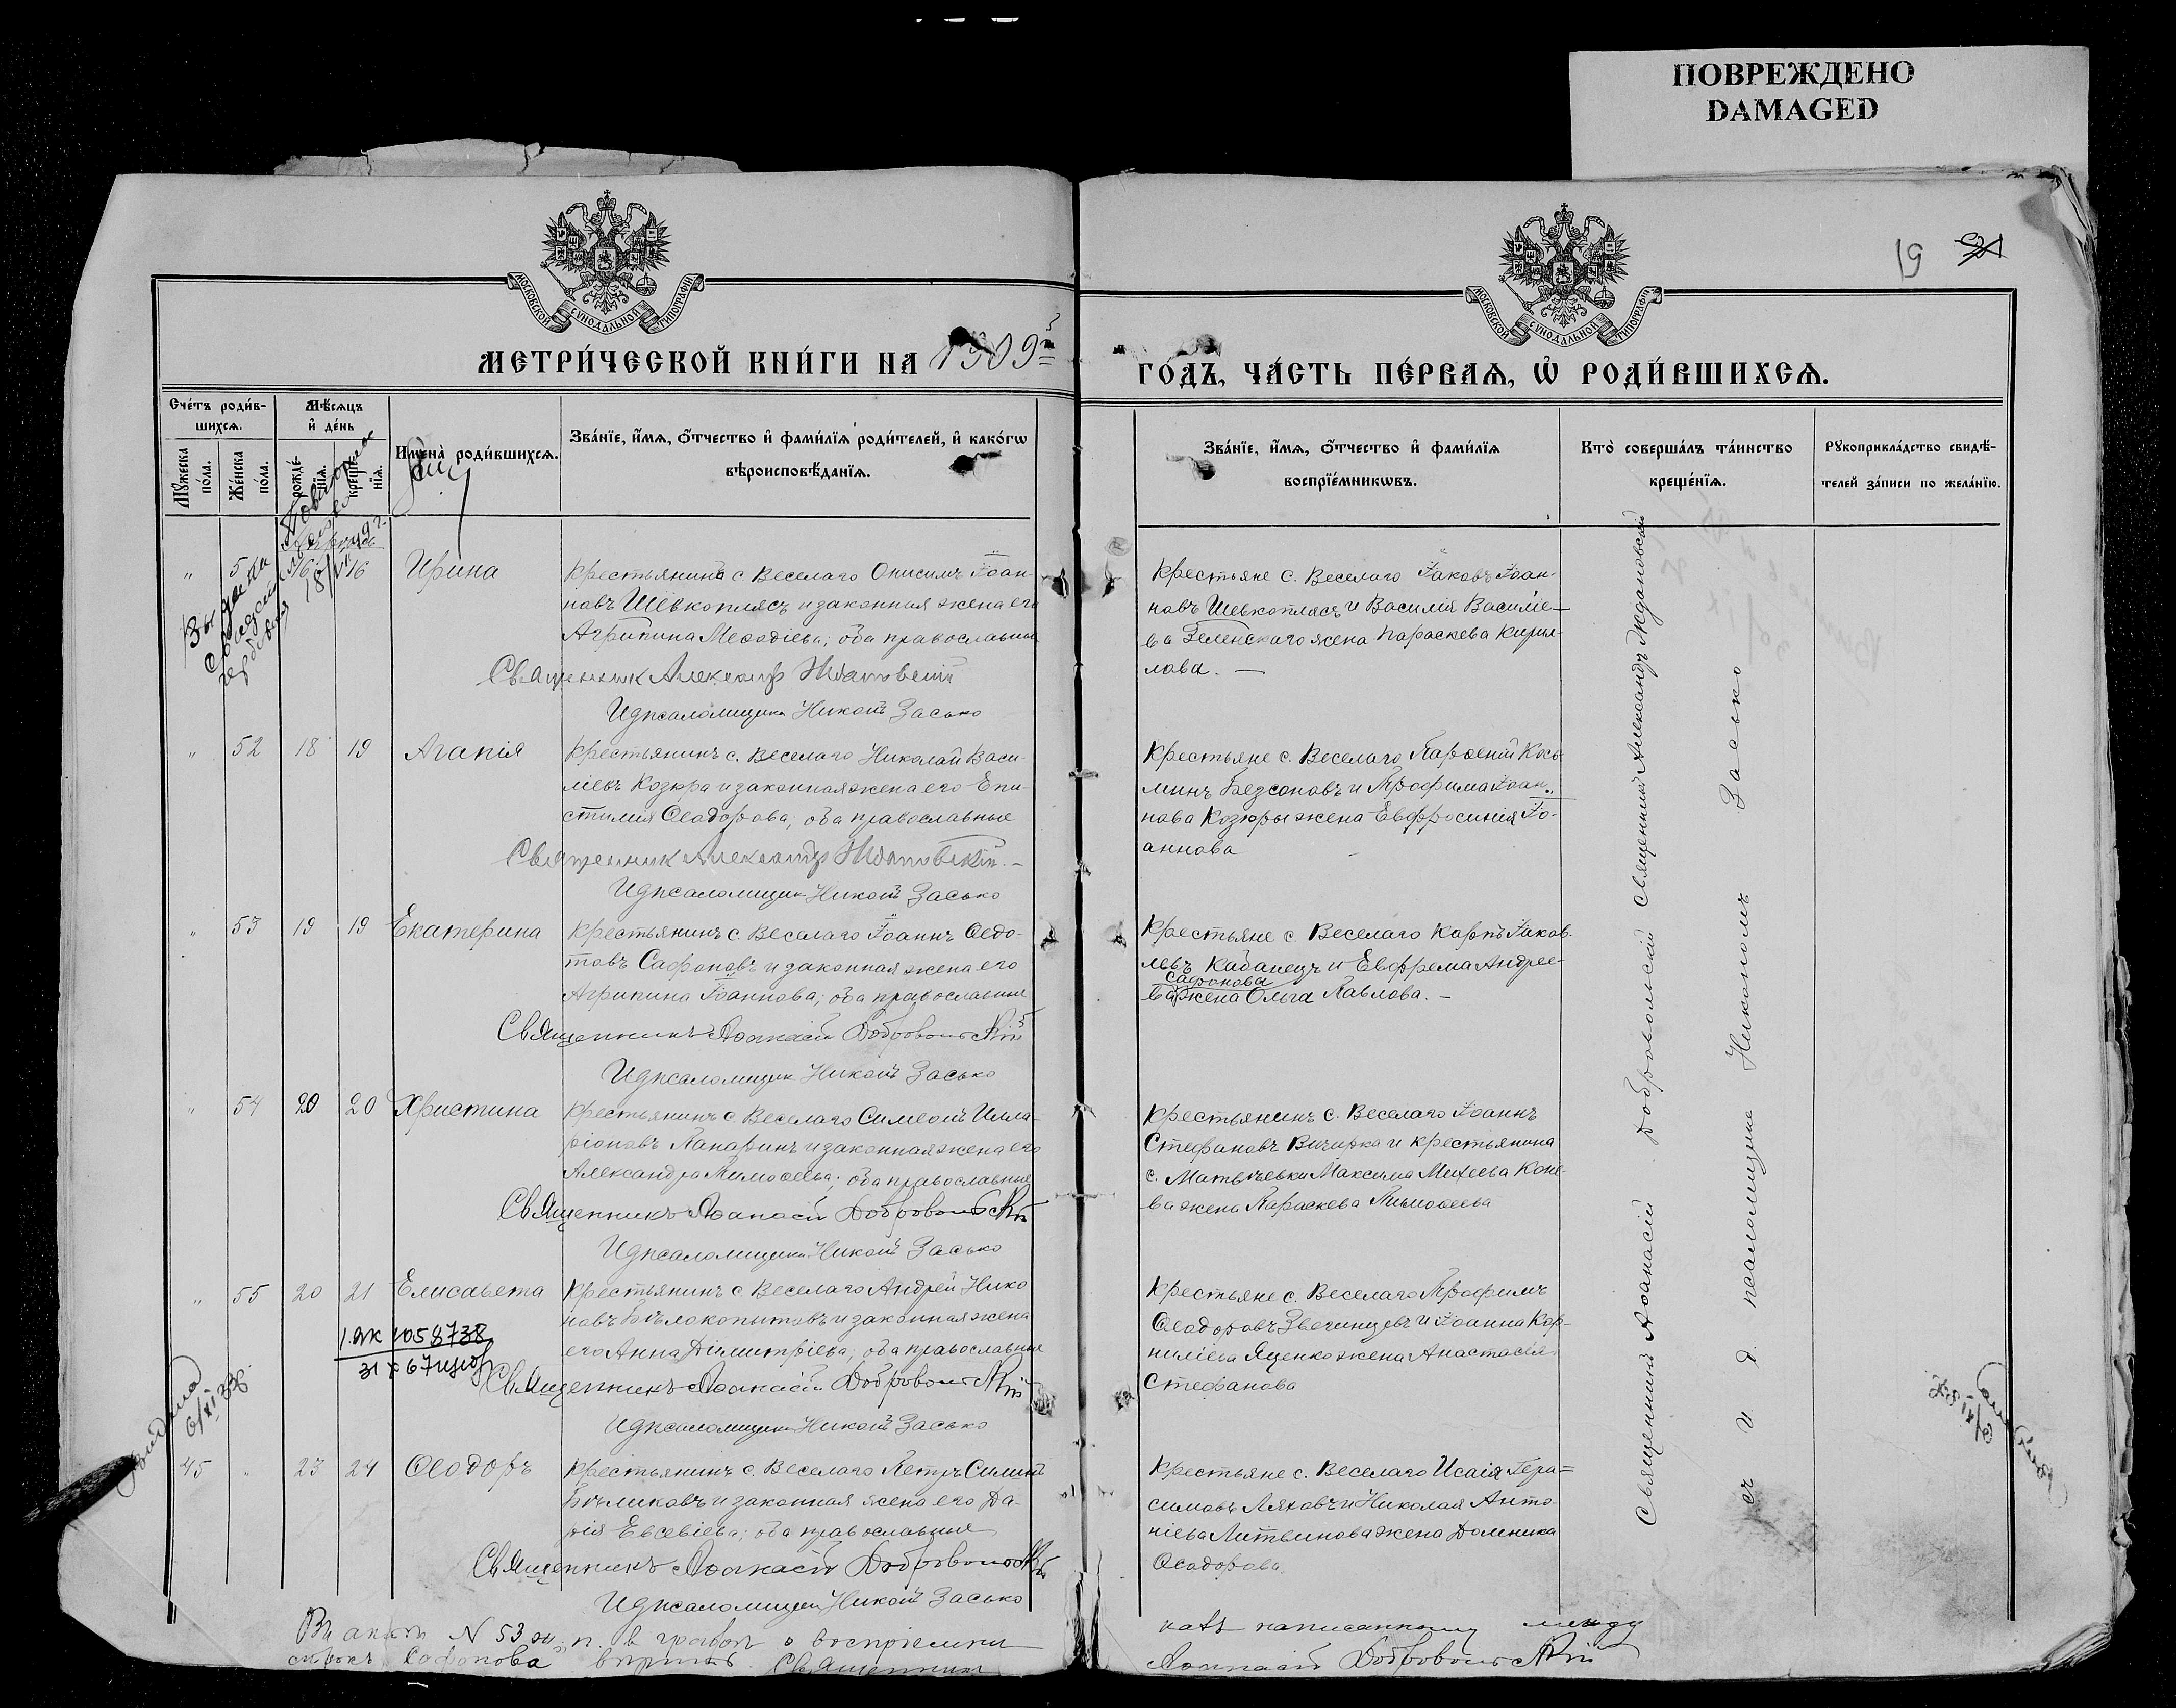 ПОВРЕЖДЕНО
DAMAGED
19
МОСКОВСКОЙ СУНОДАЛЬНОЙ ТИПОГРАФІИ
МОСКОВСКОЙ СУНОДАЛЬНОЙ ТИПОГРАФІИ
МЕТРИ́ЧЕСКОЙ КНИ́ГИ НА 1909й
ГО́ДЪ, ЧА́СТЬ ПЕ́РВАѦ, Ѡ҆ РОДИ́ВШИХСѦ.
Сче́тъ роди́в-
шихсѧ.
Мѣ́сѧцъ
и҆ де́нь
Мꙋжеска по́ла.
Же́нска по́ла.
рожде́-
нїѧ.
креще́-
нїѧ.
И҆мена̀ роди́вшихсѧ.
Зва́нїе, и҆́мѧ, ѻ҆́тчество и҆ фами́лїѧ роди́телей, и҆ како́гѡ
вѣроисповѣ́данїѧ.
Зва́нїе, и҆́мѧ, ѻ҆́тчество и҆ фами́лїѧ
воспрїе́мникѡвъ.
Кто̀ соверша́лъ та́инство
креще́нїѧ.
Рꙋкоприкла́дство свидѣ́-
телей за́писи по жела́нїю.
16 Ирина
Крестьянинъ с. Веселаго Онисимъ Іоан-
новъ Шевкоплясъ и законная жена его
Агрипина Меѳодіева; оба православные
Священник Александр Ждановскій
И д псаломщика Никонъ Засько
Крестьяне с. Веселаго Іаковъ Іоан-
новъ Шевкоплясъ и Василія Василіе-
ва Зеленскаго жена Параскева Кирил-
лова. —
" 52 18 19 Агапія
Крестьянинъ с. Веселаго Николай Васи-
ліевъ Козюра и законная жена его Епи-
стимія Ѳеодорова, оба православные
Священник Александр Ждановскій. —
И д псаломщика Никонъ Засько
Крестьяне с. Веселаго Парѳеній Косъ-
минъ Безсоновъ и Трофима Іоан-
нова Козюры жена Евфросинія Іо-
аннова
" 53 19 19 Екатерина
Крестьянинъ с. Веселаго Іоаннъ Ѳедо-
товъ Сафоновъ и законная жена его
Агрипина Іоаннова; оба православные
Священникъ Аѳанасій Добровольскій
И д псаломщика Никонъ Засько
Крестьяне с. Веселаго Карпъ Іаков-
левъ Кабанецъ и Евфрема Андрее-
Сафонова
ва жена Ольга Павлова. —
" 54 20 20 Христина
Крестьянинъ с. Веселаго Симеонъ Илла-
ріоновъ Панаринъ и законная жена его
Александра Тимоѳеева; оба православные
Священникъ Аѳанасій Добровольскій
И д псаломщика Никонъ Засько
Крестьянинъ с. Веселаго Іоаннъ
Стефановъ Вичирка и крестьянина
с. Матвѣевки Максима Михеева Коне-
ва жена Параскева Тимоѳеева
" 55 20 21 Елисавета
Крестьянинъ с Веселаго Андрей Нико-
новъ Бѣлокопытовъ и законная жена
его Анна Димитріева; оба православные
Священникъ Аѳанасій Добровольскій
И д псаломщика Никонъ Засько
Крестьяне с. Веселаго Трофимъ
Ѳеодоровъ Звегинцевъ и Іоанна Кор-
ниліева Яценко жена Анастасія
Стефанова
1058738
45 " 23 24 Ѳеодоръ
Крестьянинъ с. Веселаго Петръ Силинъ
Бѣликовъ и законная жена его Да-
рія Евсевіева; оба православные
Священникъ Аѳанасій Добровольскій
И д псаломщика Никонъ Засько
Крестьяне с. Веселаго Исаія Гера-
симовъ Ляховъ и Николая Анто-
ніева Литвинова жена Домника
Ѳеодорова.
Священникъ Аѳанасій Добровольскій Священникъ Александръ Ждановскій
съ и. д. псаломщика Никономъ Засько
Въ актѣ N 53 ж. п. в графѣ о воспріемни
кахъ написанному между
строкъ "Сафонова" вѣрить. Священникъ
Аѳанасій Добровольскій